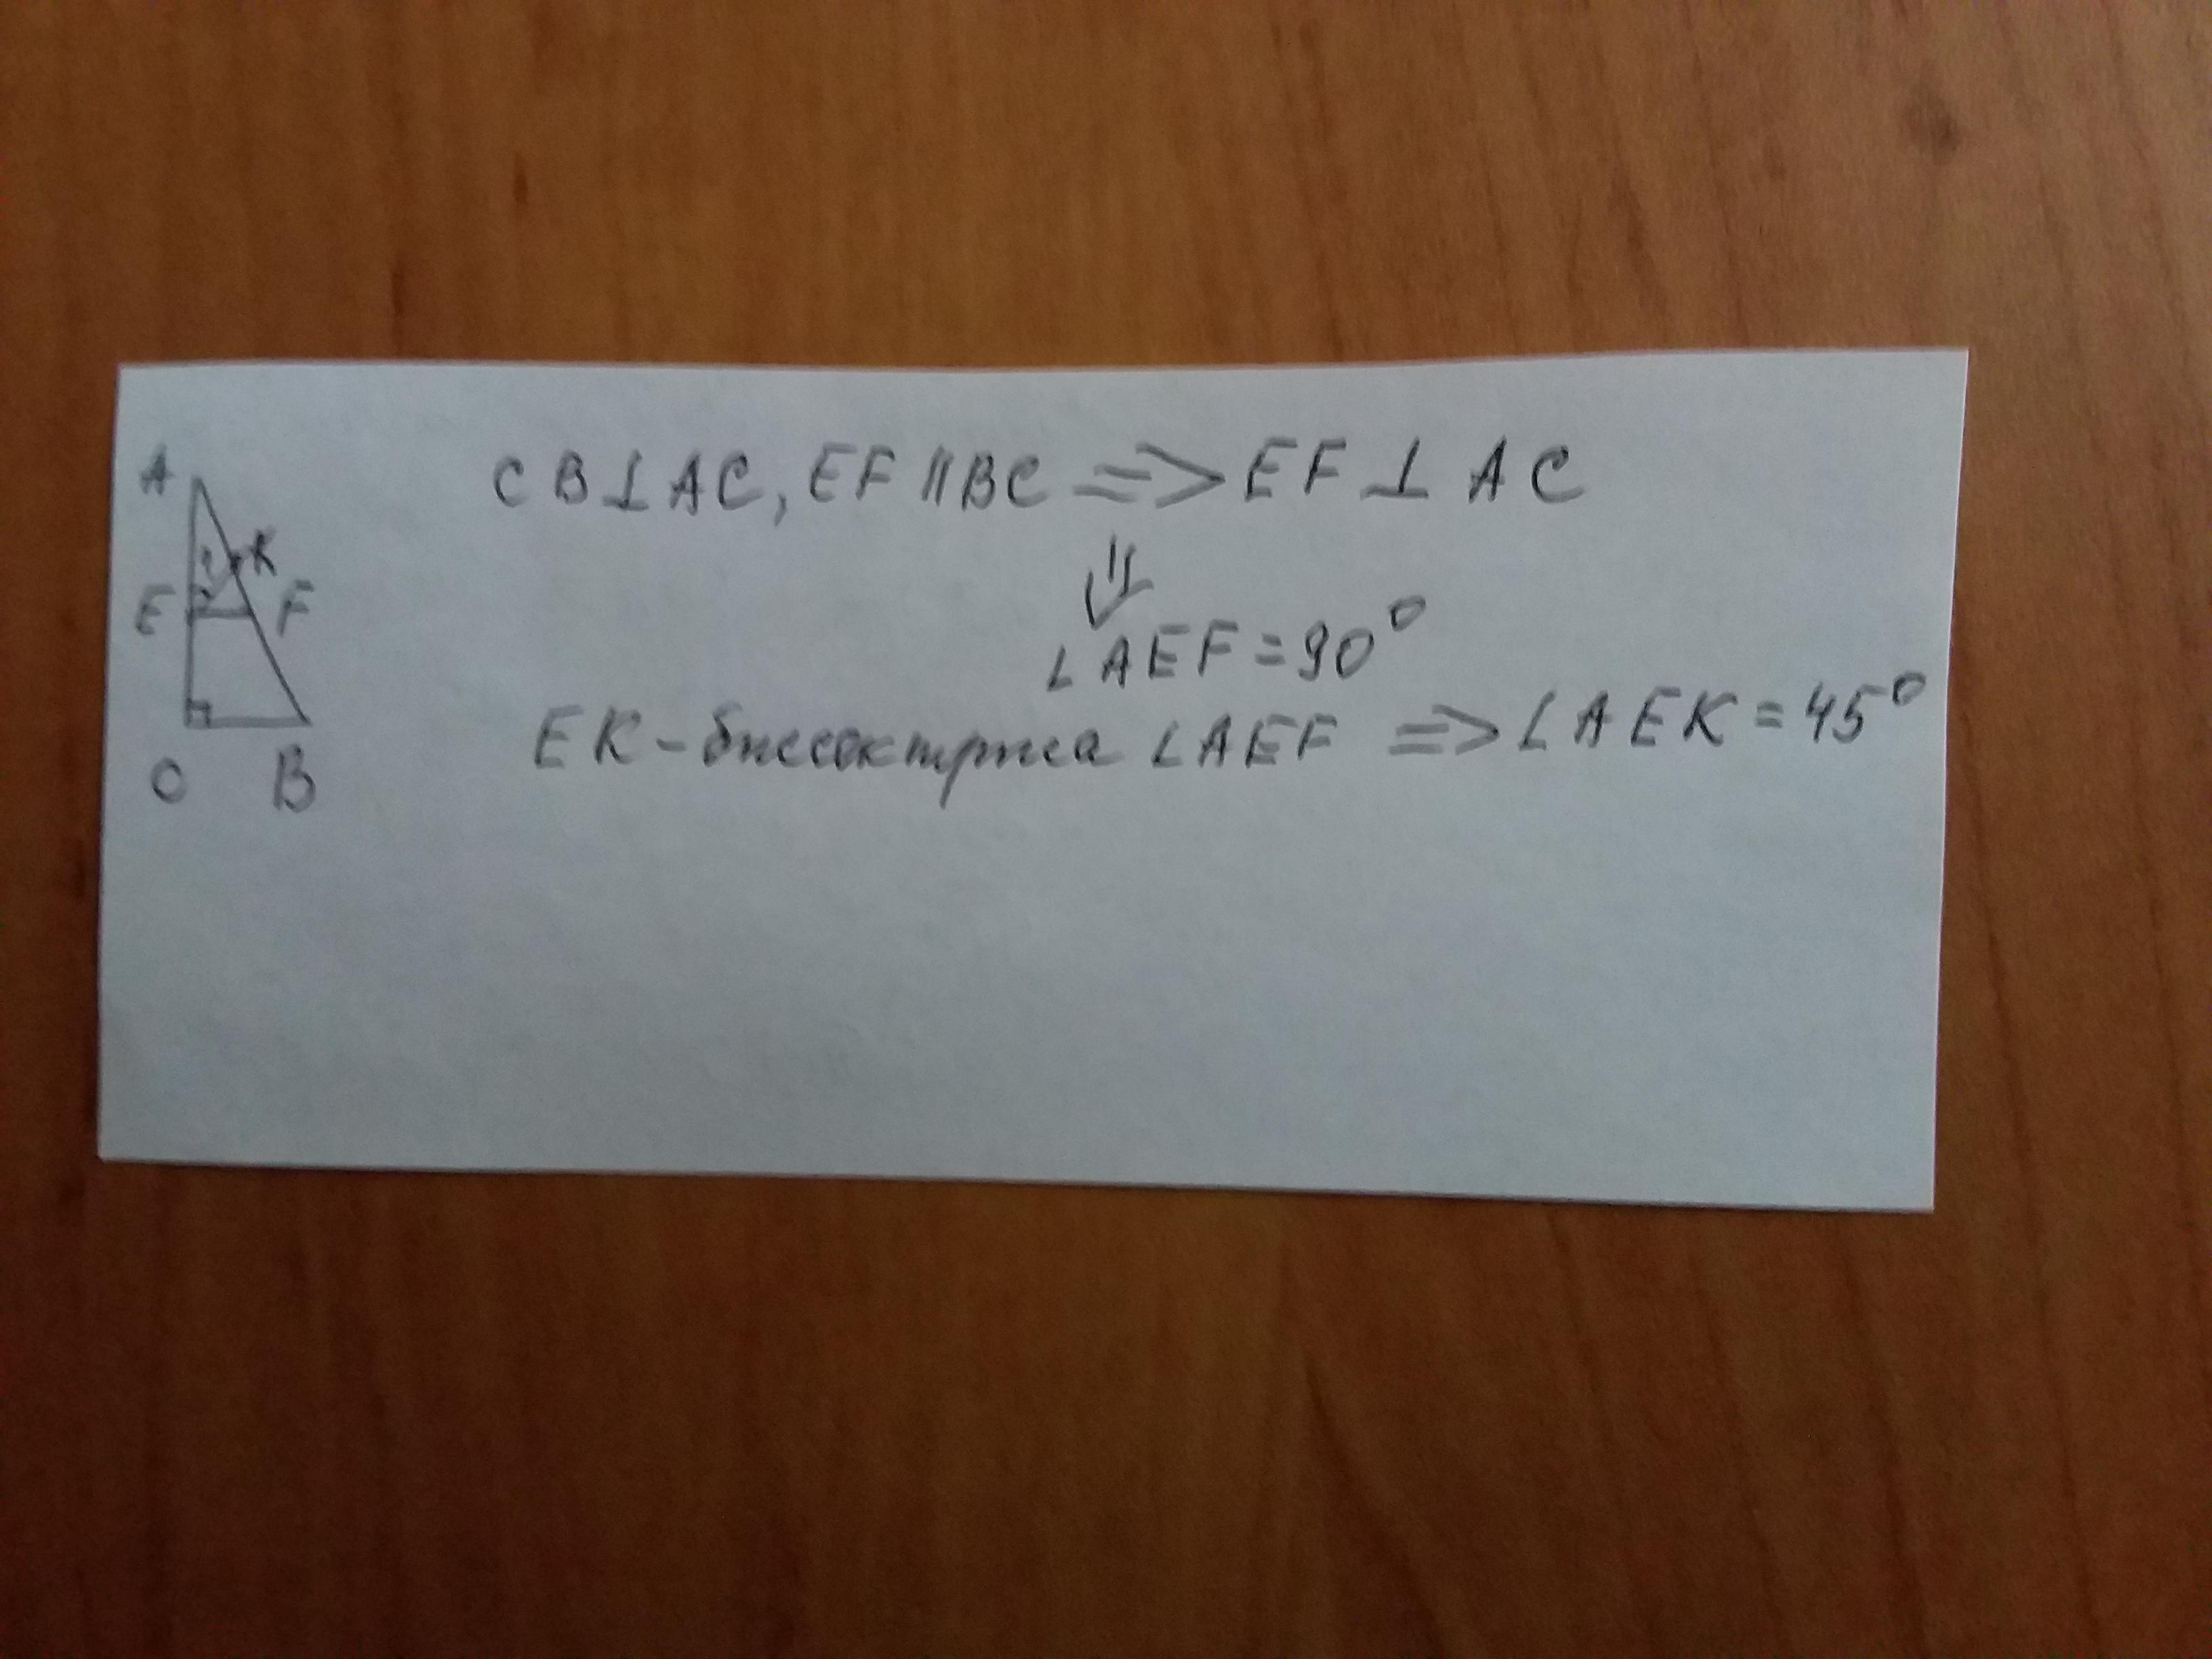 A
K
E F
C B
CB⊥AC, EF||BC => EF⊥AC
⇓
∠AEF=90°
EK-биссектриса ∠AEF => ∠AEK=45°